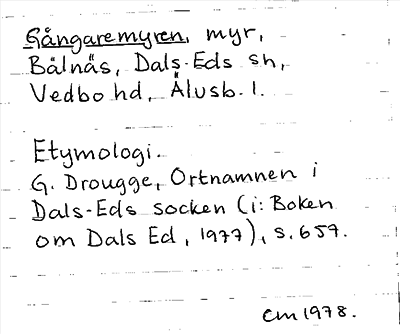 Gångaremyren, myr,
Bålnäs, Dals-Eds sn,
Vedbo hd, Älvsb. l.
Etymologi.
G. Drougge, Ortnamnen i
Dals-Eds socken (i: Boken
om Dals Ed, 1977), s. 657.
CM 1978.